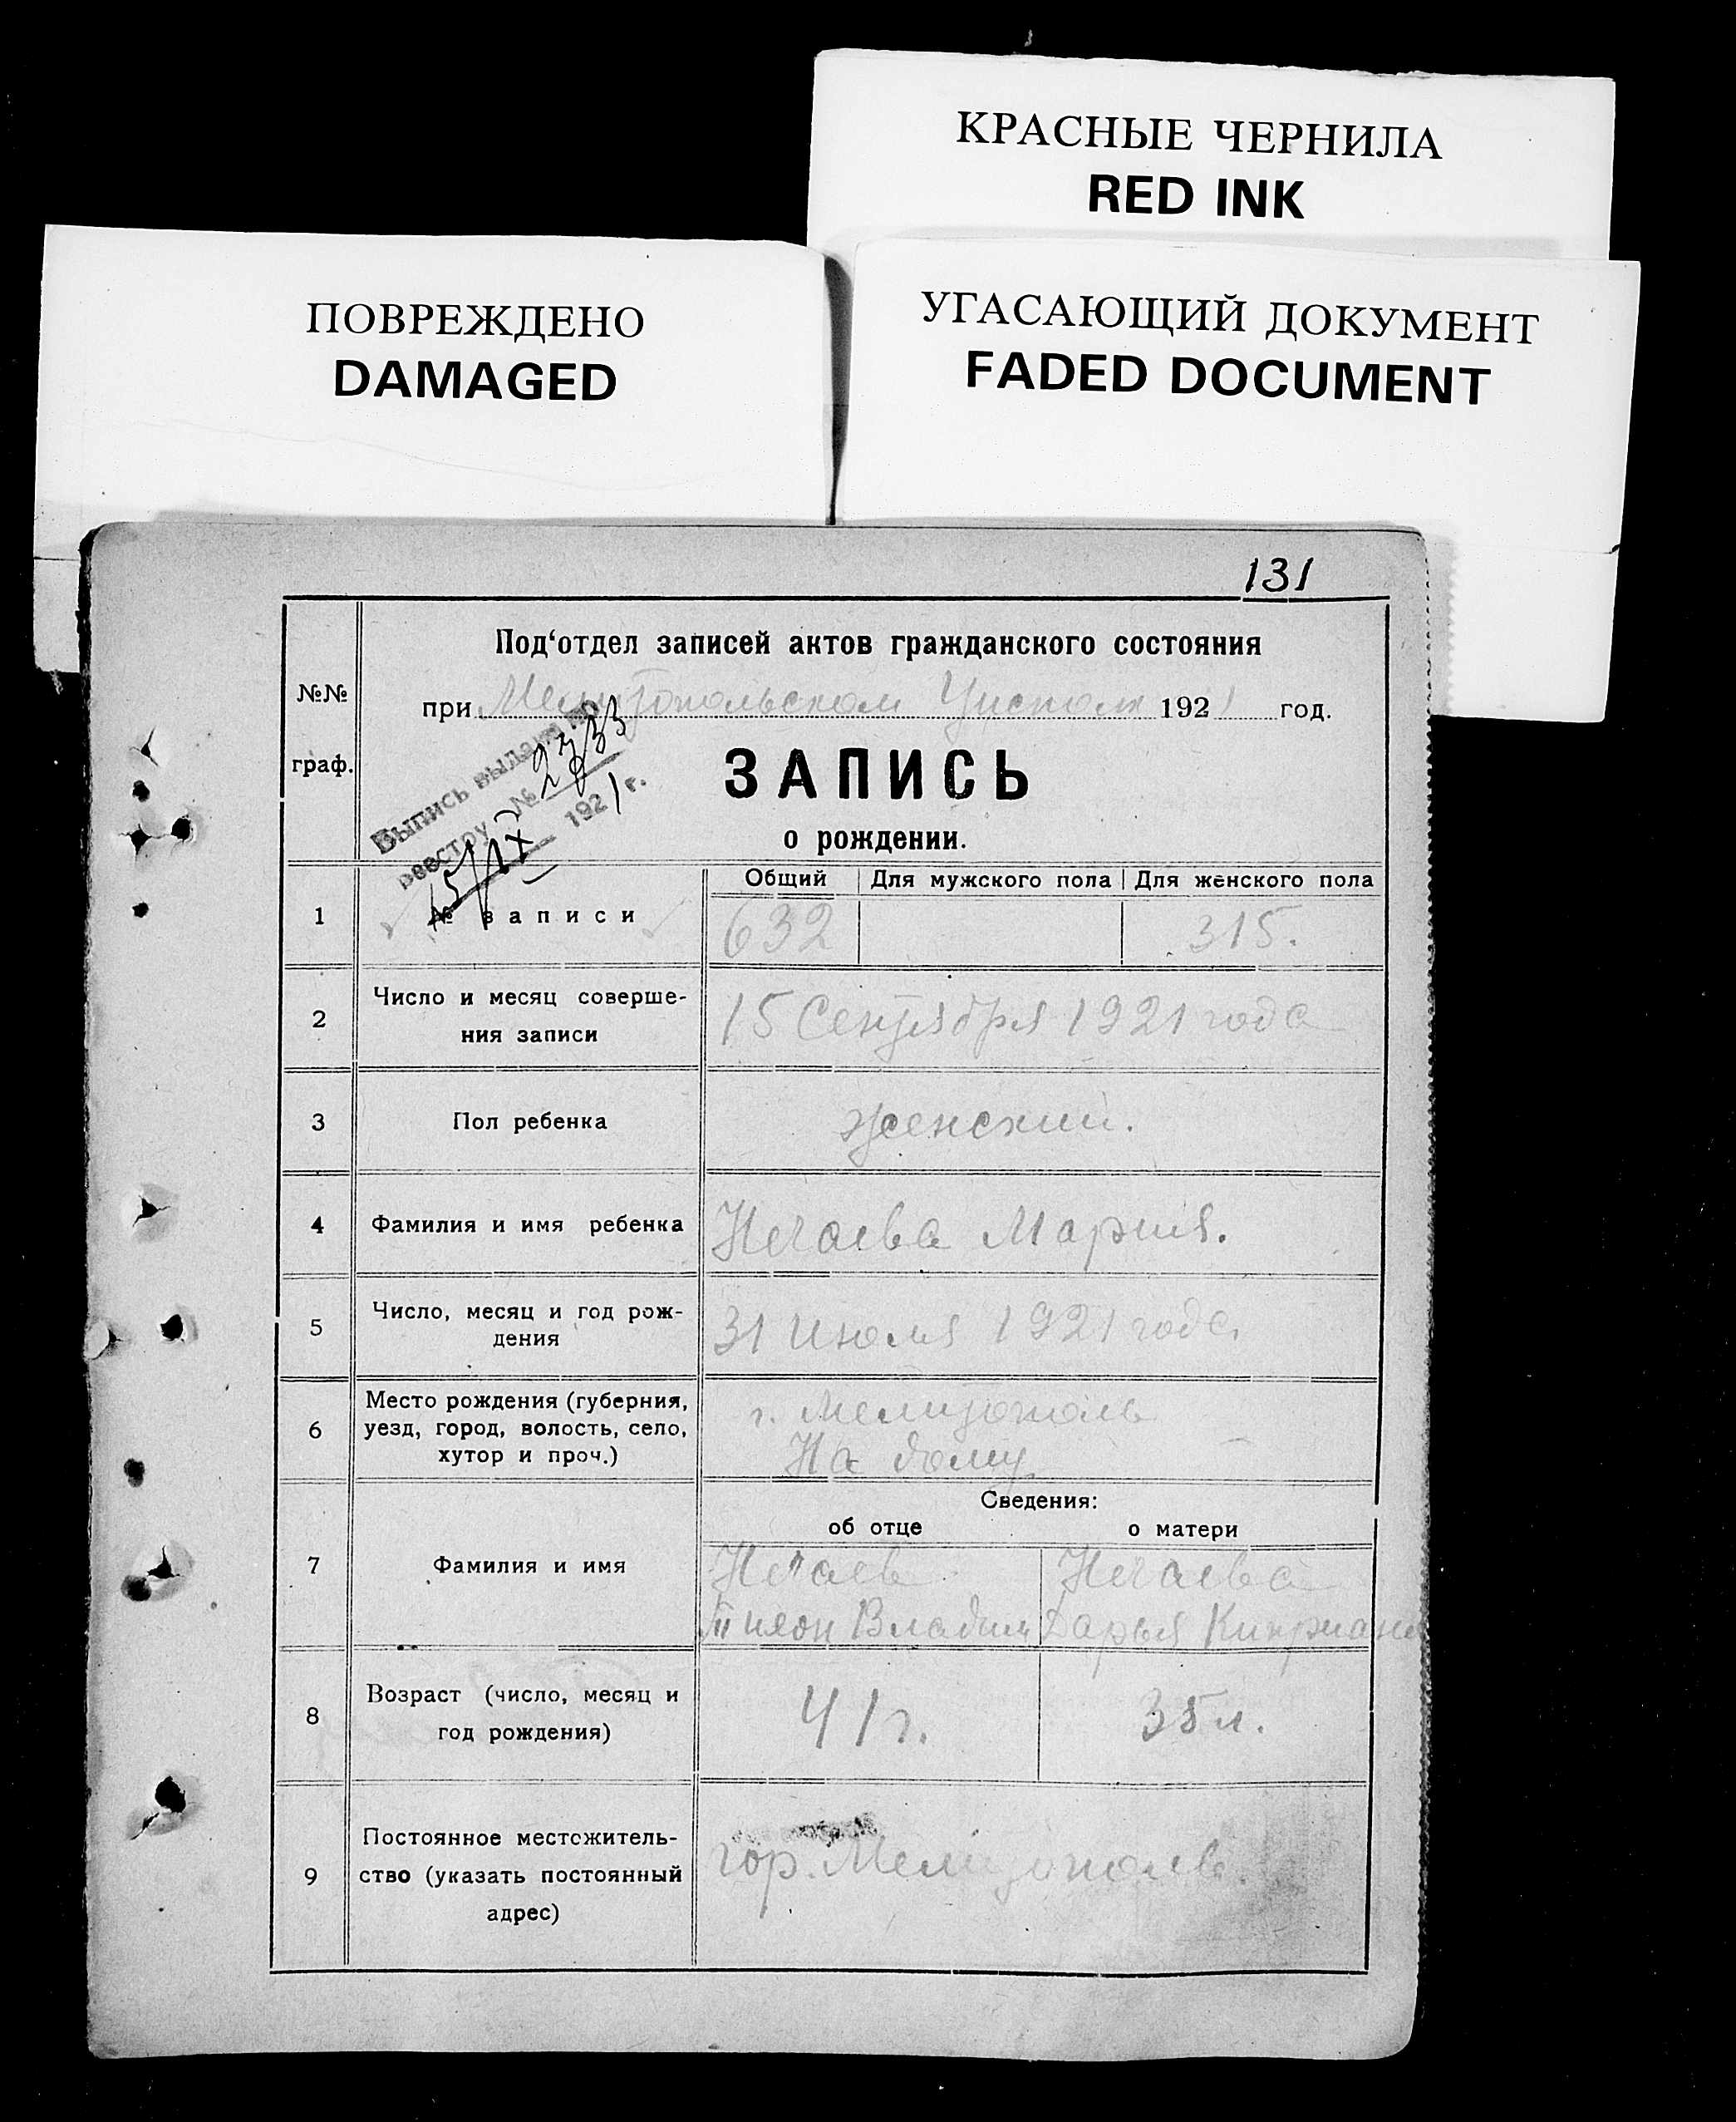 КРАСНЫЕ ЧЕРНИЛА
RED INK
ПОВРЕЖДЕНО
DAMAGED
УГАСАЮЩИЙ ДОКУМЕНТ
FADED DOCUMENT
131
№№
граф.
Под‘отдел записей актов гражданского состояния
при Мелитопольском 1921 год.
Выпись выдана по
реестру № 2733
15/IX 1921 г.
ЗАПИСЬ
о рождении.
Общий Для мужского пола Для женского пола
1 № записи 632 315.
2 Число и месяц соверше-
ния записи
15 Сентября 1921 года
3 Пол ребенка женский.
4 Фамилия и имя ребенка Нечаева Мария.
5 Число, месяц и год рож-
дения
31 Июля 1921 года
6 Место рождения (губерния,
уезд, город, волость, село,
хутор и проч.)
г. Мелитополь
На дому
Сведения:
об отце о матери
7 Фамилия и имя
Нечаев Нечаева
Владим Дарья Киприан
8 Возраст (число, месяц и
год рождения)
41 г. 35 л.
9 Постоянное местожитель-
ство (указать постоянный
адрес)
гор. Мелитополь.